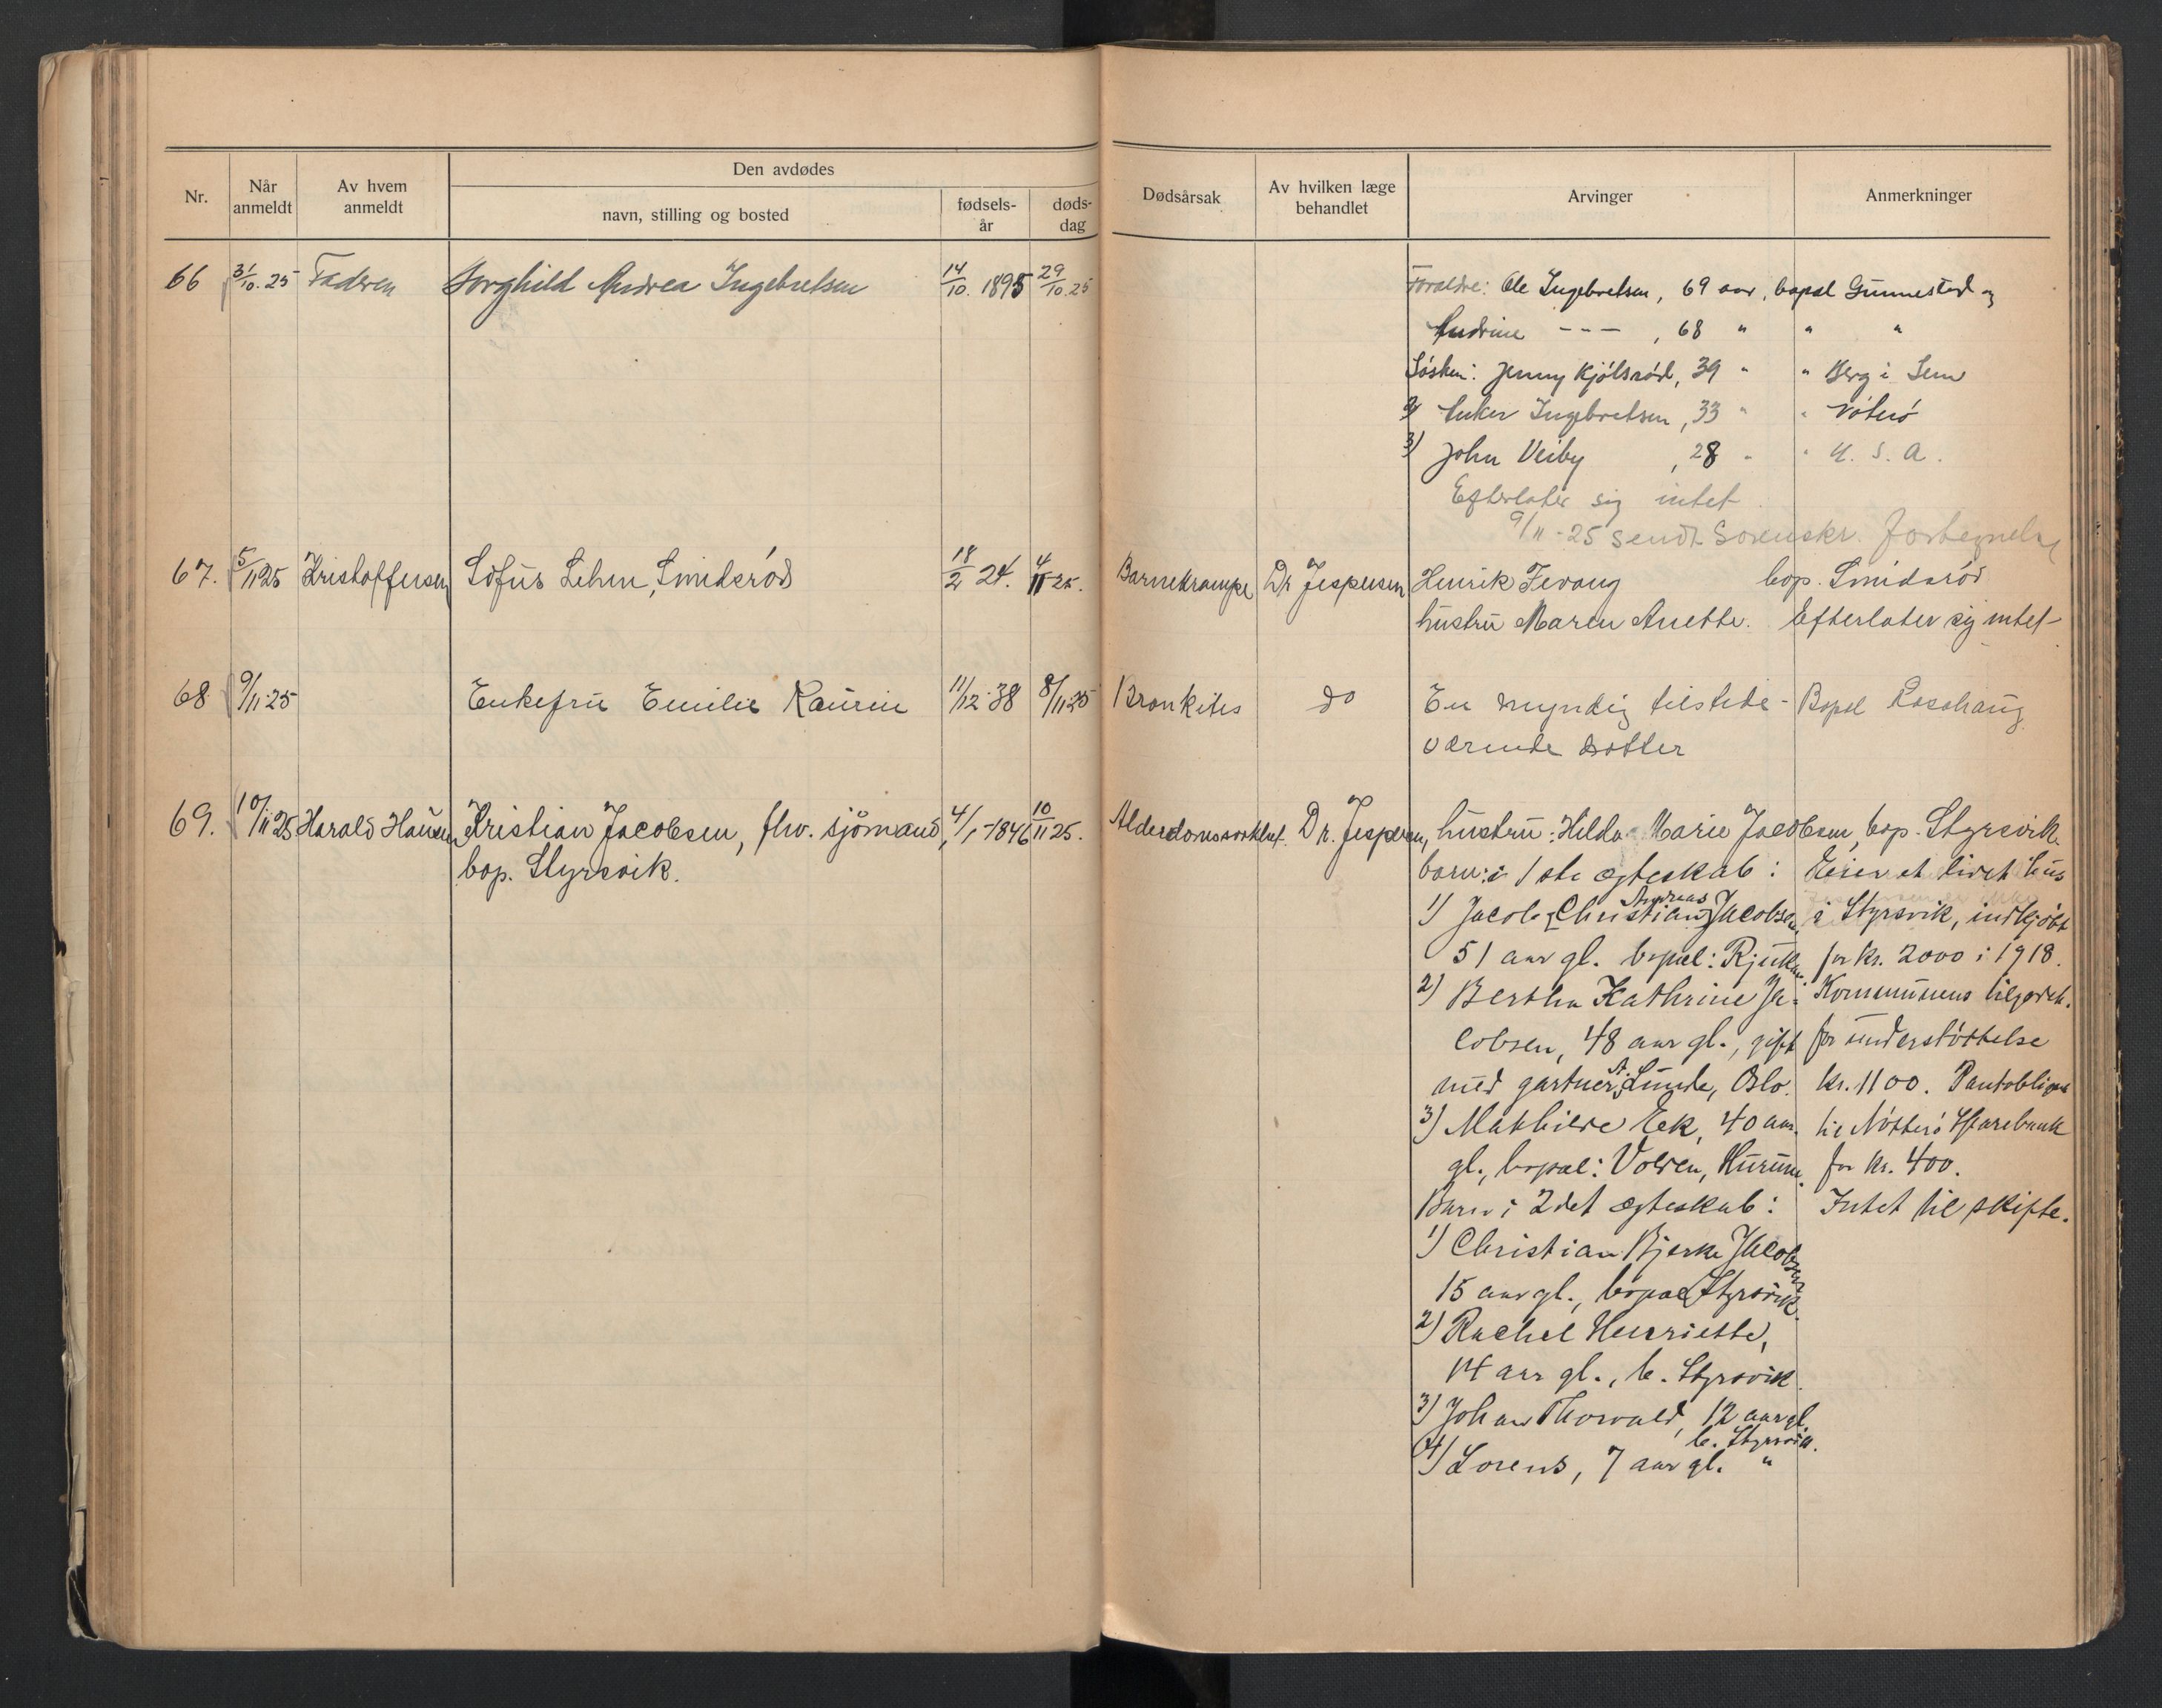 Nr.
Når anmeldt
Av hvem anmeldt
Den avdødes
navn, stilling og bosted
fødsels-år
døds-dag
Dødsårsak
Av hvilken læge behandlet
Arvinger
Anmerkninger
66 31/10.25 Faderen Borghild Andrea Ingebretsen 14/10. 1895 29/10.25
Foreldre: Ole Ingebretsen, 69 aar, bopæl Gunnestad og
Andrine - - - , 68 " " "
Søsken: Jenny Kjölsröd, 39 " " Berg i Sem
2) Anker Ingebretsen, 33 " " Nöterö
3) John Veiby , 28 " " U. S. A.
Efterlater sig intet
9/11-25 sendt Sorenskr. fortegnelse
67. 5/11 25 Kristoffersen Sofus Lehn, Smidsröd 18/2 24. 4/11 25. Barnekrampe Dr Jespersen Henrik Fevang bop. Smidsröd
hustru Maren Anette. Efterlater sig intet
68 9/11.25 Enkefru Emilie Kaurin 11/12.38 8/11 25 Bronkitis do En myndig tilstede- Bopæl Rosahaug
værende datter
69. 10/11 25 Harald Hansen Kristian Jacobsen, fhv. sjömand, 4/1-1846 10/11 25. Alderdomssvakhet. Dr. Jespersen, hustru: Hilda Marie Jacobsen, bop. Styrsvik.
bop. Styrsvik.
barn: i 1ste ægteskab: Eier et lidet hus
1) Jacob Christian Andreas Jacobsen, i Styrsvik, indkjöbt
51 aar gl. bopæl: Rjukan for kr. 2000 i 1918.
2) Bertha Kathrine Ja- Kommunens tilgodeh.
cobsen, 48 aar gl., gift for understöttelse
med gartner A. Lunde, Oslo. kr. 1100. Pantobligat.
3) Mathilde Eek, 40 aar til Nötterö Sparebank
gl., bopæl: Volden, Hurum. for kr. 400.
Barn i 2det ægteskab: Intet til skifte.
1) Christian Bjerke Jacobsen
15 aar gl., bopæl Styrsvik.
2) Rachel Henriette,
14 aar gl., b. Styrsvik.
3) Johan Thorvald, 12 aar gl.
b. Styrsvik.
4) Lorens, 7 aar gl. "